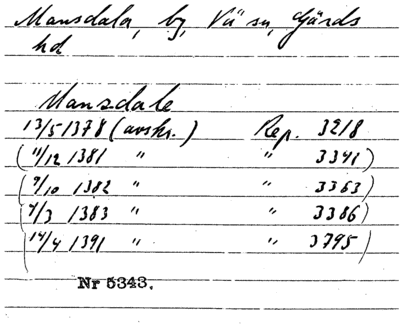 Mansdala, by, Vä sn, Gärds
hd
Mansdale
13/5 1378 (avskr.) Rep. 3218
(11/12 1381 " " 3341)
(9/10 1382 " " 3363)
(4/3 1383 " " 3386)
(14/4 1391 " " 3795)
Nr 5343.